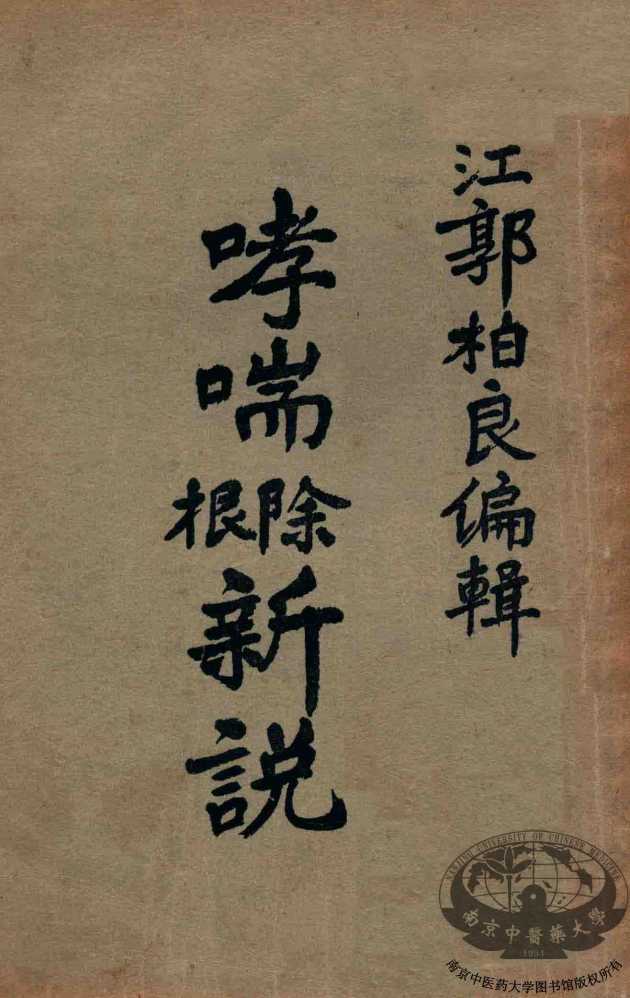 江郭柏良偏輯
哮喘除根新説
NANJING UNIVERSITY OF CHINESE MEDICINE
南京中醫藥大學
1954
南京中医药大学图书馆版权所有